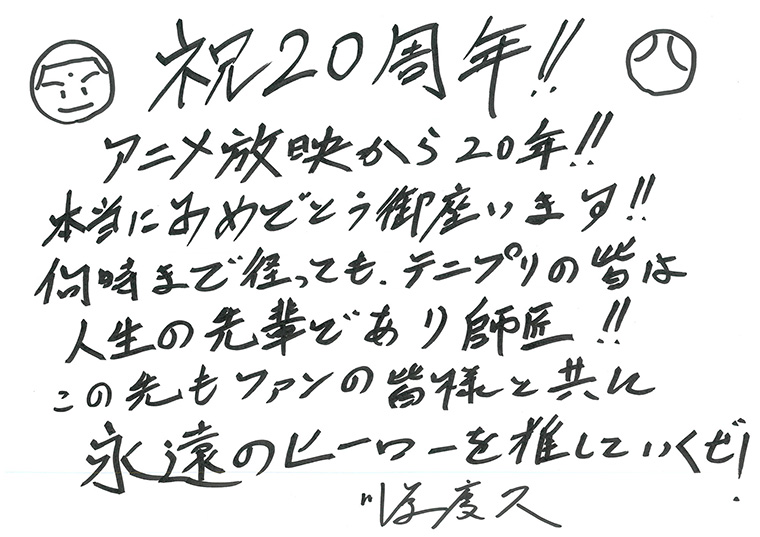 祝20周年!!
アニメ放映から20年!!
本当におめでとう御座います!!
何時まで径っても、テニプリの皆は
人生の先輩であり師匠!!
この先もファンの皆様と共に
永遠のヒーローを推していくぜ!